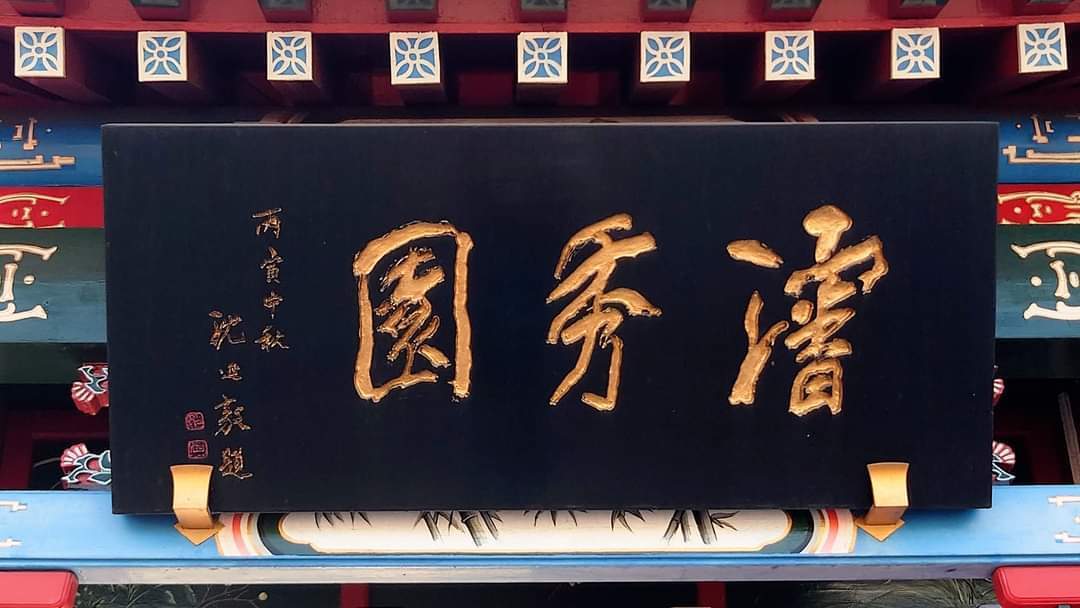 瀋秀園
丙寅中秋
沈延毅題